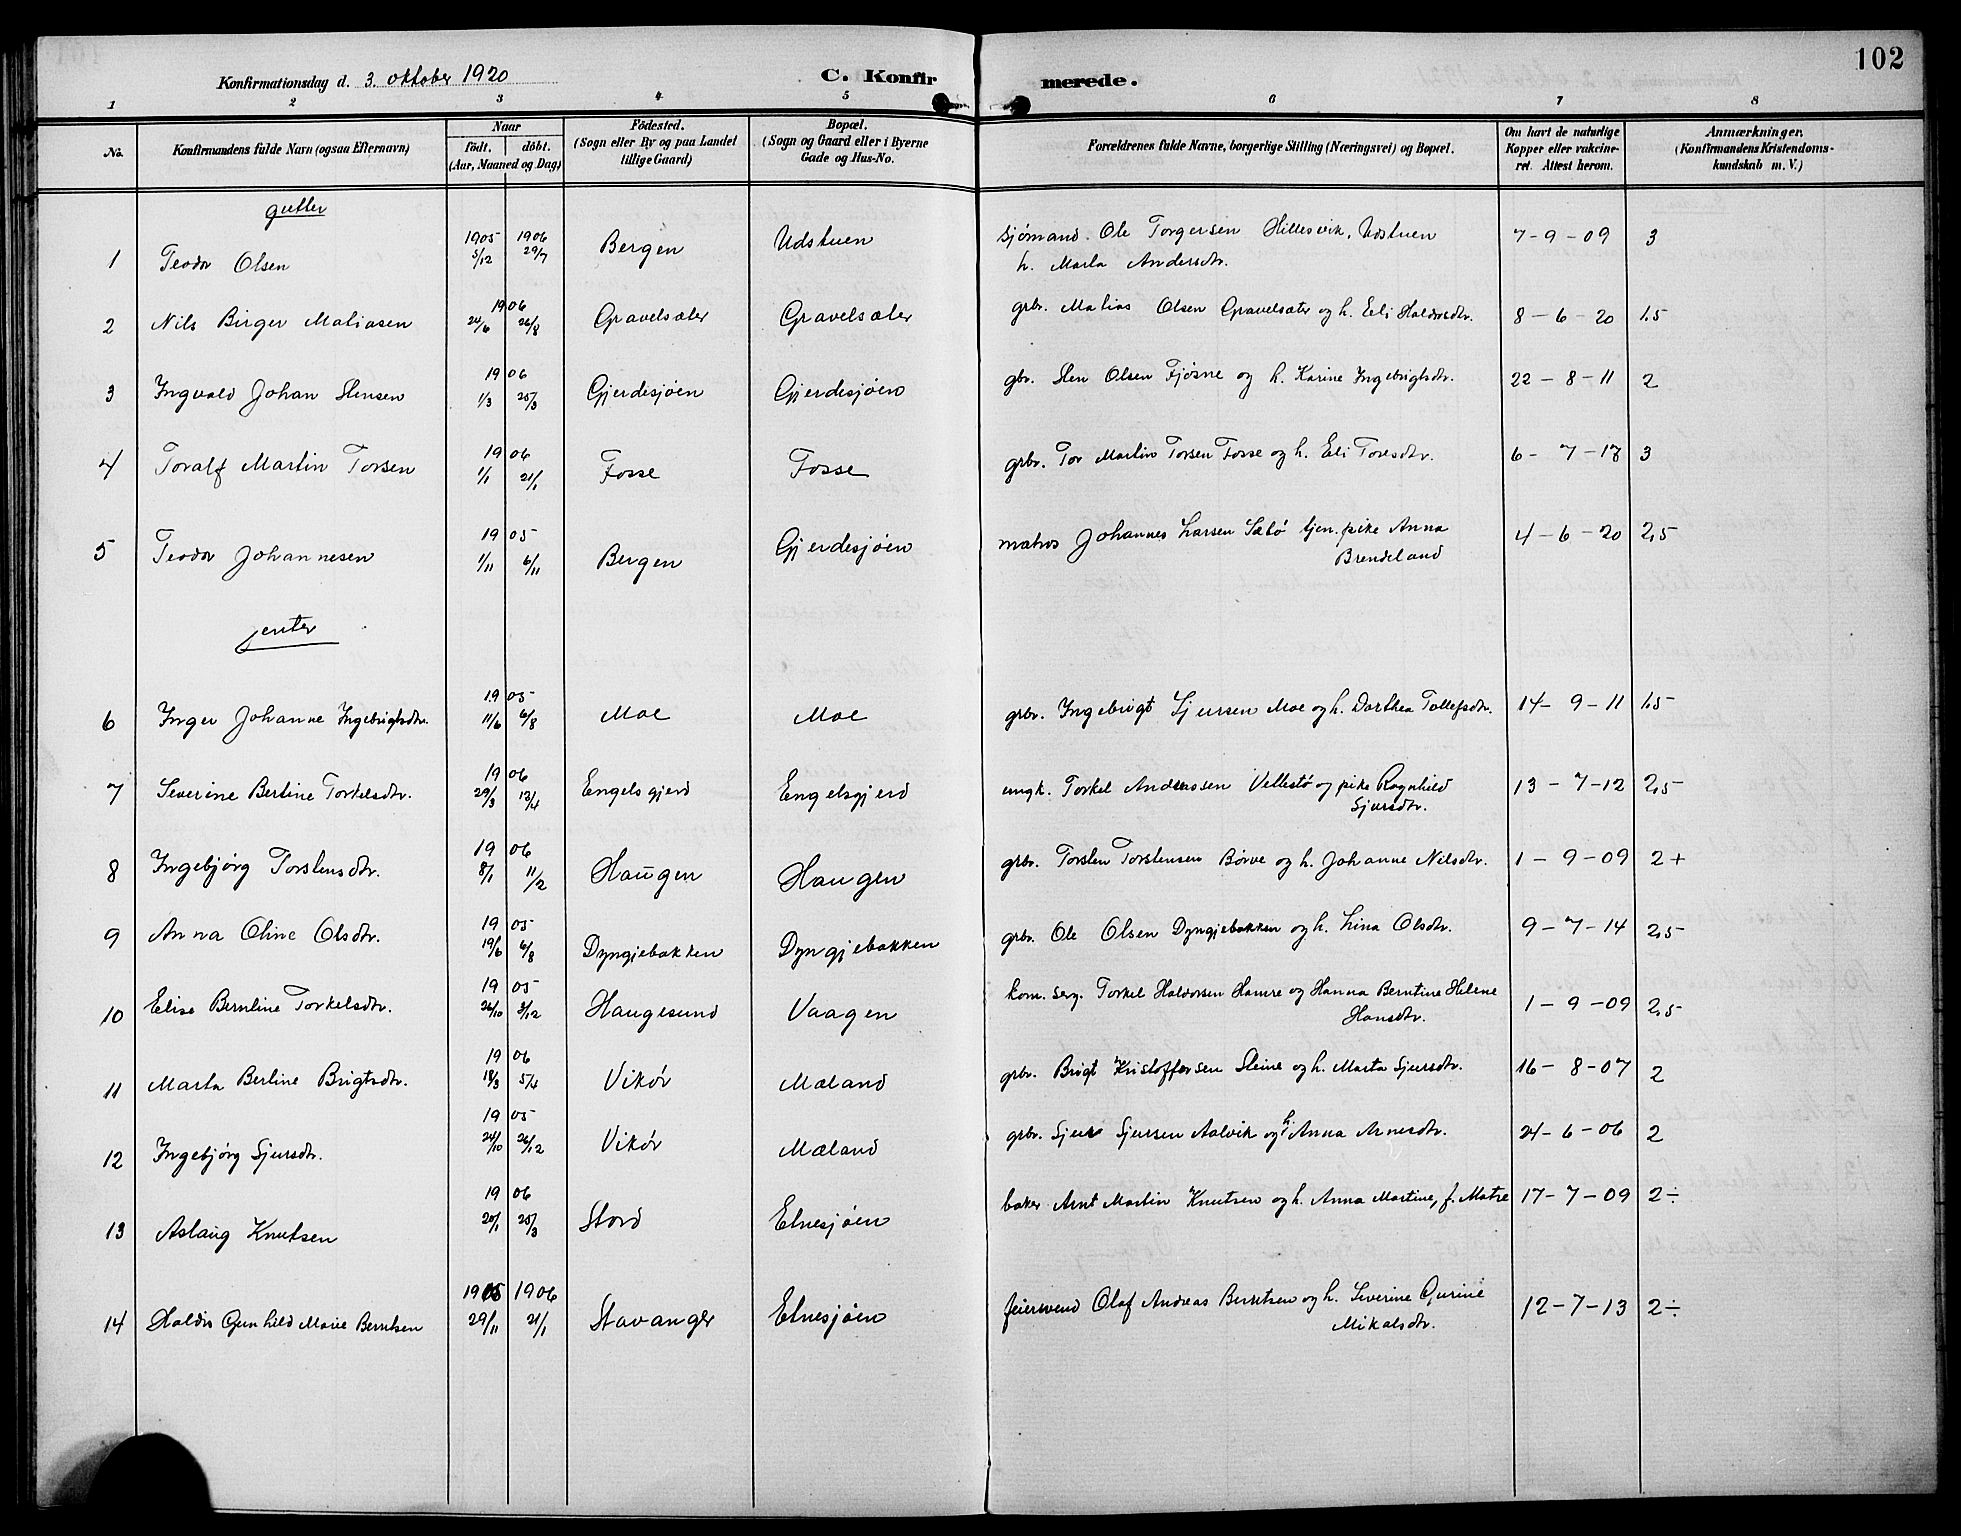 102
Konfirmationsdag d. 3. oktober 1920 C. Konfirmerede.
1 2 3 4 5 6 7 8
No. Konfirmandens fulde Navn (ogsaa Efternavn) Naar født. døbt. (Aar, Maaned og Dag) Fødested. (Sogn eller By og paa Landet tillige Gaard) Bopæl. (Sogn og Gaard eller i Byerne Gade og Hus-No. Forældrenes fulde Navne, borgerlige Stilling (Næringsvei) og Bopæl. Om havt de naturlige Kopper eller vakcineret. Attest herom. Anmærkninger. (Konfirmandens Kristendomskundskab m. V.)
gutter
1 Teodor Olsen 1905 5/12 1906 29/7 Bergen Udstuen sjømand. Ole Torgersen Hillesvik, Udstuen 7-9-09 3
h. Marta Andersdtr.
2 Nils Birger Matiasen 1906 24/6 26/8 Gravelsæter Gravelsæter grbr. Matias Olsen Gravelsæter og h. Eli Haldorsdtr. 8-6-20 1.5
3 Ingvald Johan Stensen 1906 1/3 25/3 Gjerdesjøen Gjerdesjøen gbr. Sten Olsen Fjøsne og h. Karine Ingebrigtsdtr. 22-8-11 2
4 Toralf Martin Torsen 1906 1/1 21/1 Fosse Fosse grbr. Tor Martin Torsen Fosse og h. Eli Toresdtr. 6-7-17 3
5 Teodor Johannesen 1905 1/11 6/11 Bergen Gjerdesjøen matros Johannes Larsen Sæbø tjen. pike Anna 4-6-20 2,5
Brendeland
jenter
6 Inger Johanne Ingebrigtsdtr. 1905 11/6 6/8 Moe Moe grbr. Ingebrigt Sjursen Moe og h. Dorthea Tollefsdtr. 14-9-11 1.5
7 Severine Bertine Torkelsdtr. 1906 29/3 13/4 Engelsgjerd Engelsgjerd ungk. Torkel Anderssen Vettestø og pike Ragnhild 13-7-12 2,5
Sjursdtr.
8 Ingebjørg Torstensdtr. 1906 8/1 11/2 Haugen Haugen grbr. Torsten Torstensen Børve og h. Johanne Nilsdtr. 1-9-09 2+
9 Anna Oline Olsdtr. 1905 19/6 6/8 Dyngjebakken Dyngjebakken grbr. Ole Olsen Dyngjebakken og h. Lina Olsdtr. 9-7-14 2,5
10 Elise Berntine Torkelsdtr. 1905 26/10 3/12 Haugesund Vaagen kom. serg. Torkel Haldorsen Hamre og Hanna Berntine Helene 1-9-09 2,5
Hansdtr.
11 Marta Bertine Brigtsdtr. 1906 18/3 5/4 Vikør Mæland grbr. Brigt Kristoffersen Steine og h. Marta Sjursdtr. 16-8-07 2
12 Ingebjørg Sjursdtr. 1905 24/10 26/12 Vikør Mæland grbr. Sjur Sjursen Aalvik og h. Anna Arnesdtr. 24-6-06 2
13 Aslaug Knutsen 1906 20/1 25/3 Stord Elnesjøen baker Arnt Martin Knutsen og h. Anna Martine, f. Matre 17-7-09 2÷
14 Haldis Gunhild Marie Berntsen 1905 29/11 1906 21/1 Stavanger Elnesjøen feiersvend Olaf Andreas Berntsen og h. Severine Gurine 12-7-13 2÷
Mikalsdtr.